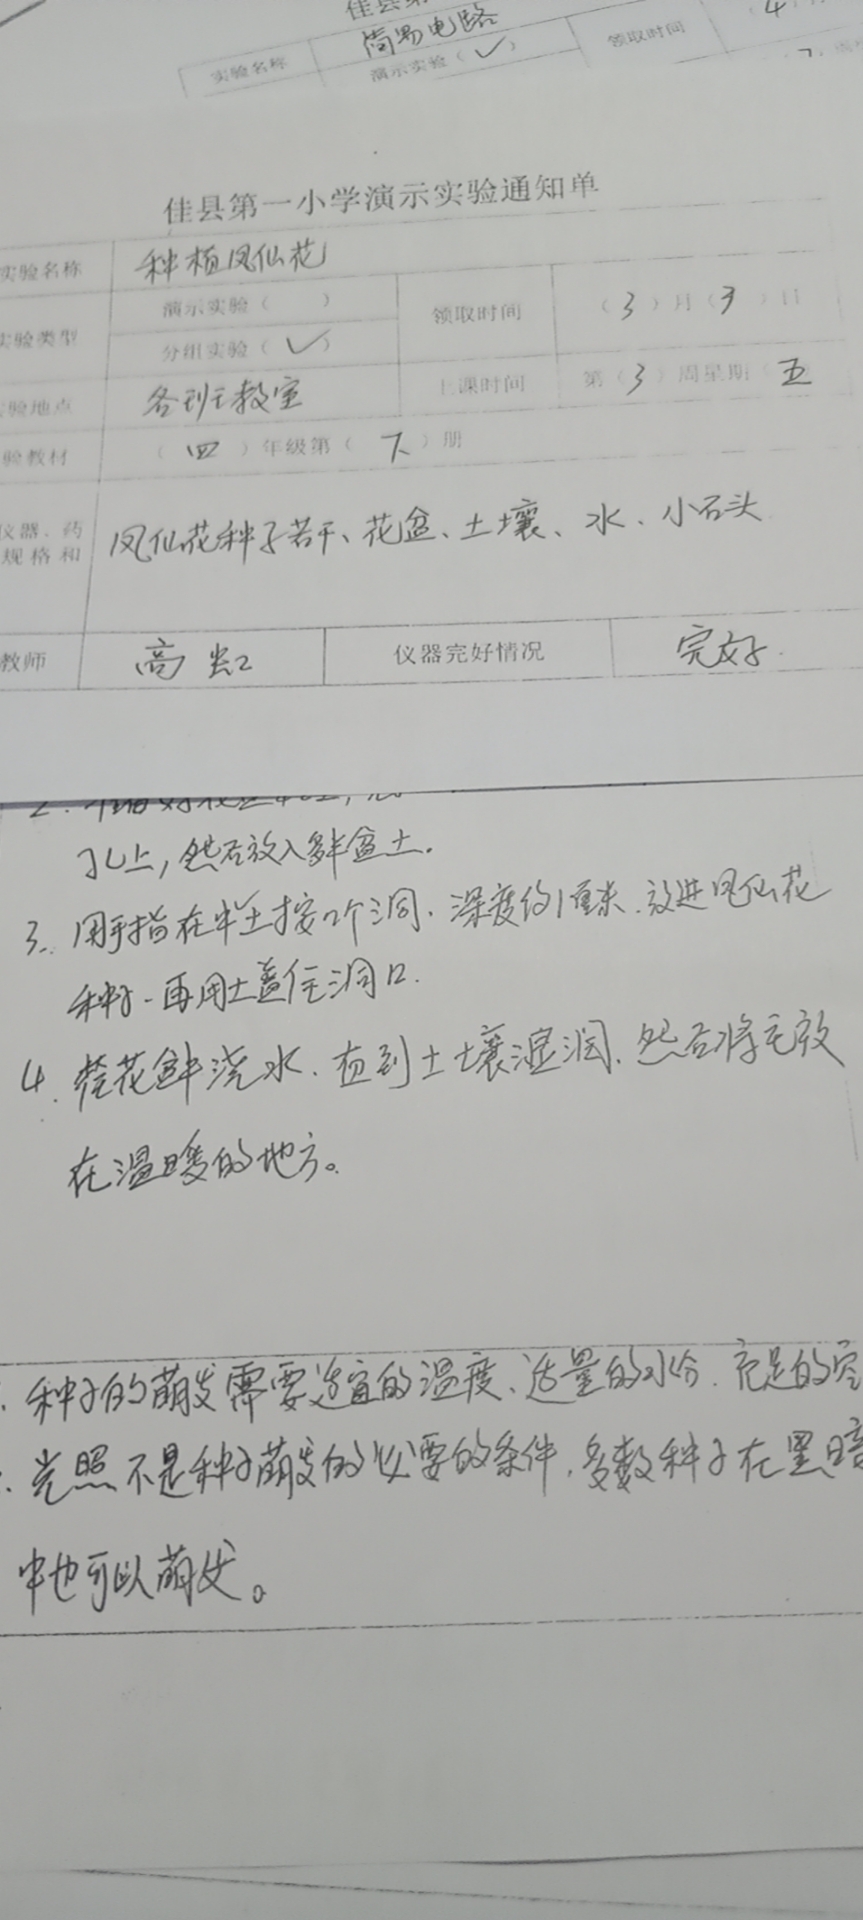 佳县第
实验名称 简易电路 领取时间 4
演示实验（✓）
佳县第一小学演示实验通知单
实验名称 种植凤仙花
实验类型 演示实验（ ） 领取时间 （3）月（3）日
分组实验（✓）
验地点 各班教室 上课时间 第（3）周星期 五
验教材 （四）年级第（下）册
仪器、药 凤仙花种子若干、花盆、土壤、水、小石头
规格和
教师 高 仪器完好情况 完好.
2.
孔上，然后放入半盆土.
3. 用手指在土按2个洞.深度约1厘米.放进凤仙花
种子.再用土盖住洞口.
4. 花盆浇水.直到土壤湿润.然后将它放
在温暖的地方。
种子的萌发需要适宜的温度、适量的水分.充足的空
光照不是种子萌发的必要的条件.多数种子在黑暗
中也可以萌发。